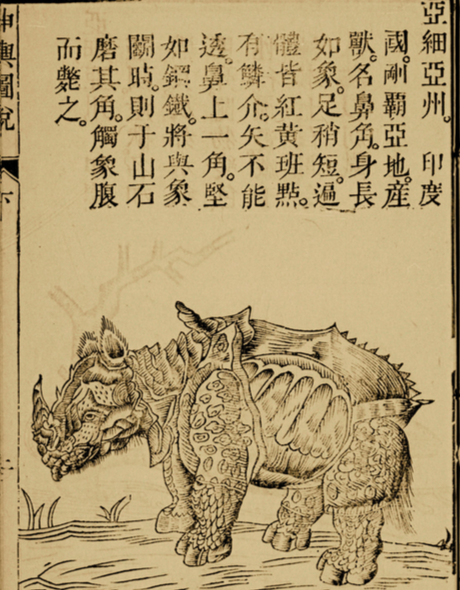 亞細亞州。 印度
國剛霸亞地產
獸。名鼻角。身長
如象。足稍短。遍
體皆紅黃班點。
有鱗介。矢不能
透。鼻上一角。堅
如鋼鐵。將與象
鬭時。則于山石
磨其角。觸象腹
而斃之。
坤輿圖說
下